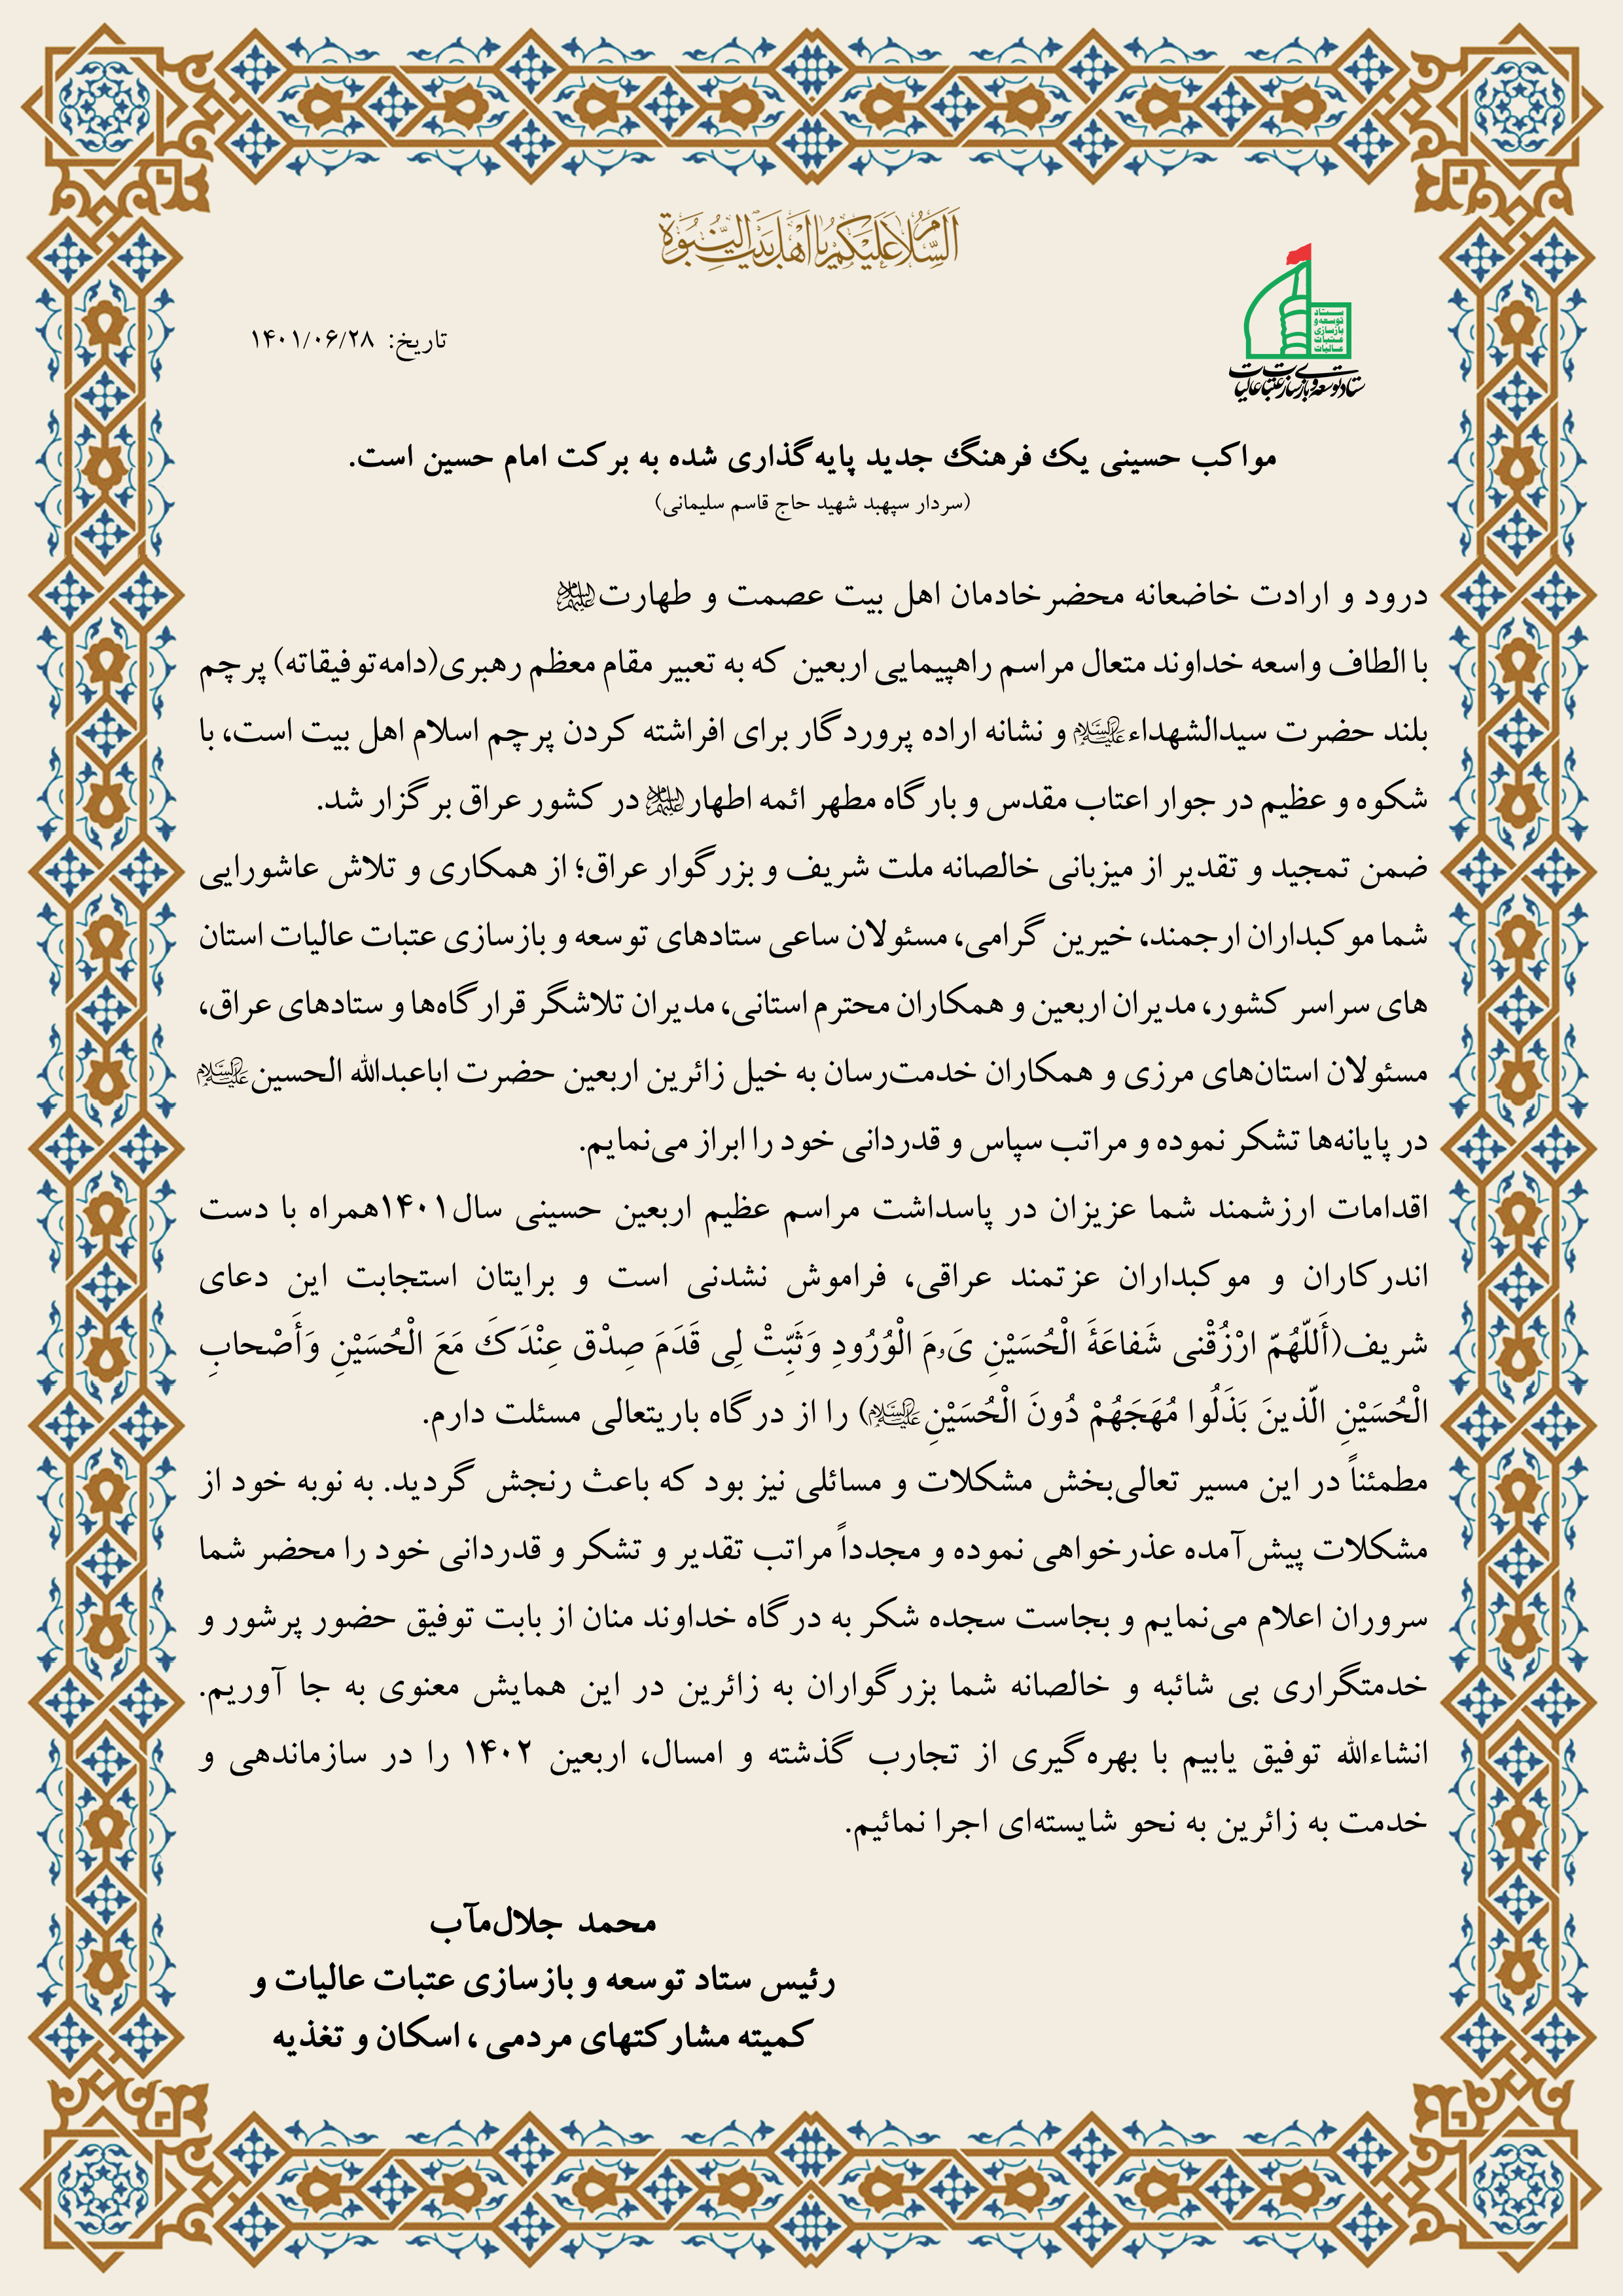 السَّلامُ عَلَيْكُمْ يا أَهْلَ بَيْتِ النُّبُوَّةِ
ستاد
توسعه و
بازسازی
عتبات
عالیات
ستاد توسعه و بازسازی عتبات عالیات
تاریخ: ۱۴۰۱/۰۶/۲۸
مواکب حسینی یک فرهنگ جدید پایه‌گذاری شده به برکت امام حسین است.
(سردار سپهبد شهید حاج قاسم سلیمانی)
درود و ارادت خاضعانه محضرخادمان اهل بیت عصمت و طهارت علیهم السلام
با الطاف واسعه خداوند متعال مراسم راهپیمایی اربعین که به تعبیر مقام معظم رهبری(دامه‌توفیقاته) پرچم
بلند حضرت سیدالشهداء علیه السلام و نشانه اراده پروردگار برای افراشته کردن پرچم اسلام اهل بیت است، با
شکوه و عظیم در جوار اعتاب مقدس و بارگاه مطهر ائمه اطهار علیهم السلام در کشور عراق برگزار شد.
ضمن تمجید و تقدیر از میزبانی خالصانه ملت شریف و بزرگوار عراق؛ از همکاری و تلاش عاشورایی
شما موکبداران ارجمند، خیرین گرامی، مسئولان ساعی ستادهای توسعه و بازسازی عتبات عالیات استان
های سراسر کشور، مدیران اربعین و همکاران محترم استانی، مدیران تلاشگر قرارگاه‌ها و ستادهای عراق،
مسئولان استان‌های مرزی و همکاران خدمت‌رسان به خیل زائرین اربعین حضرت اباعبدالله الحسین علیه السلام
در پایانه‌ها تشکر نموده و مراتب سپاس و قدردانی خود را ابراز می‌نمایم.
اقدامات ارزشمند شما عزیزان در پاسداشت مراسم عظیم اربعین حسینی سال۱۴۰۱همراه با دست
اندرکاران و موکبداران عزتمند عراقی، فراموش نشدنی است و برایتان استجابت این دعای
شریف(أَللّهُمّ ارْزُقْنی شَفاعَةَ الْحُسَیْنِ یَ‍وْمَ الْوُرُودِ وَثَبِّتْ لِی قَدَمَ صِدْق عِنْدَکَ مَعَ الْحُسَیْنِ وَأَصْحابِ
الْحُسَیْنِ الّذینَ بَذَلُوا مُهَجَهُمْ دُونَ الْحُسَیْنِ علیه السلام) را از درگاه باریتعالی مسئلت دارم.
مطمئناً در این مسیر تعالی‌بخش مشکلات و مسائلی نیز بود که باعث رنجش گردید. به نوبه خود از
مشکلات پیش‌آمده عذرخواهی نموده و مجدداً مراتب تقدیر و تشکر و قدردانی خود را محضر شما
سروران اعلام می‌نمایم و بجاست سجده شکر به درگاه خداوند منان از بابت توفیق حضور پرشور و
خدمتگراری بی شائبه و خالصانه شما بزرگواران به زائرین در این همایش معنوی به جا آوریم.
انشاءالله توفیق یابیم با بهره‌گیری از تجارب گذشته و امسال، اربعین ۱۴۰۲ را در سازماندهی و
خدمت به زائرین به نحو شایسته‌ای اجرا نمائیم.
محمد جلال‌مآب
رئیس ستاد توسعه و بازسازی عتبات عالیات و
کمیته مشارکتهای مردمی ، اسکان و تغذیه